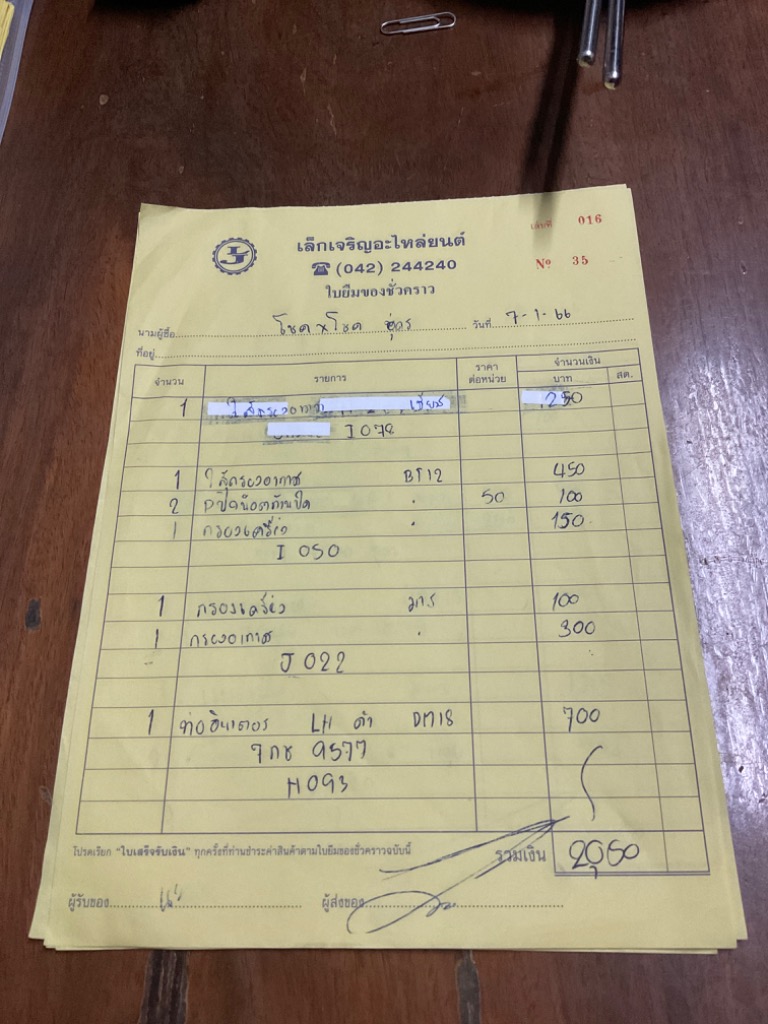 เลขที่ 016
เล็กเจริญอะไหล่ยนต์
☎ (042) 244240
Nº 35
ใบยืมของชั่วคราว
นามผู้ซื้อ โชค x โชค วันที่ 7-1-66
ที่อยู่
จำนวน รายการ ราคาต่อหน่วย จำนวนเงิน
บาท สต.
1 250
I 078
1 ไส้กรองอากาศ BT12 450
2 50 100
1 กรองเครื่อง 150
I 050
1 กรองเครื่อง 100
1 กรองอากาศ 300
J 022
1 ท่ออินเตอร์ LH ดำ DM18 700
9577
H093
โปรดเรียก "ใบเสร็จรับเงิน" ทุกครั้งที่ท่านชำระค่าสินค้าตามใบยืมของชั่วคราวฉบับนี้
รวมเงิน 2,050
ผู้รับของ ผู้ส่งของ